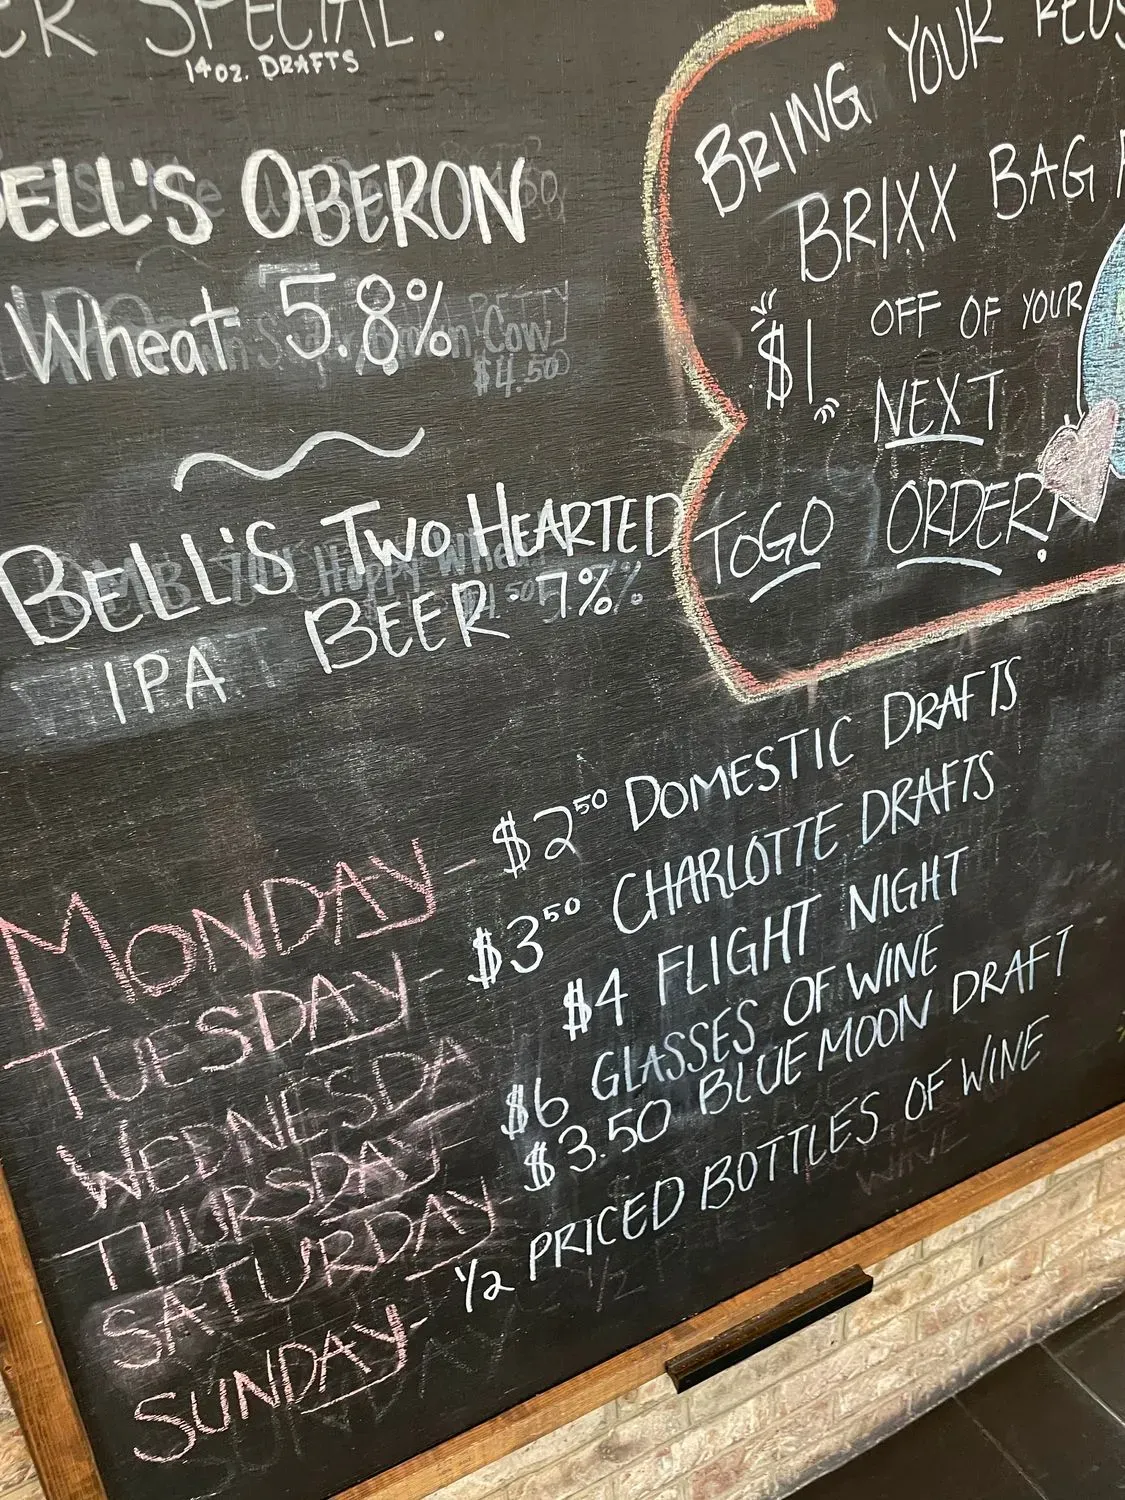 SPECIAL.
14 OZ. DRAFTS
BELL'S OBERON
Wheat 5.8%
BELL'S TWO HEARTED
IPA BEER 7%
BRING YOUR
BRIXX BAG
$1 OFF OF YOUR
NEXT
TOGO ORDER!
MONDAY - $2.50 DOMESTIC DRAFTS
TUESDAY - $3.50 CHARLOTTE DRAFTS
WEDNESDA $4 FLIGHT NIGHT
THURSDAY - $6 GLASSES OF WINE
SATURDAY - $3.50 BLUE MOON DRAFT
SUNDAY - 1/2 PRICED BOTTLES OF WINE